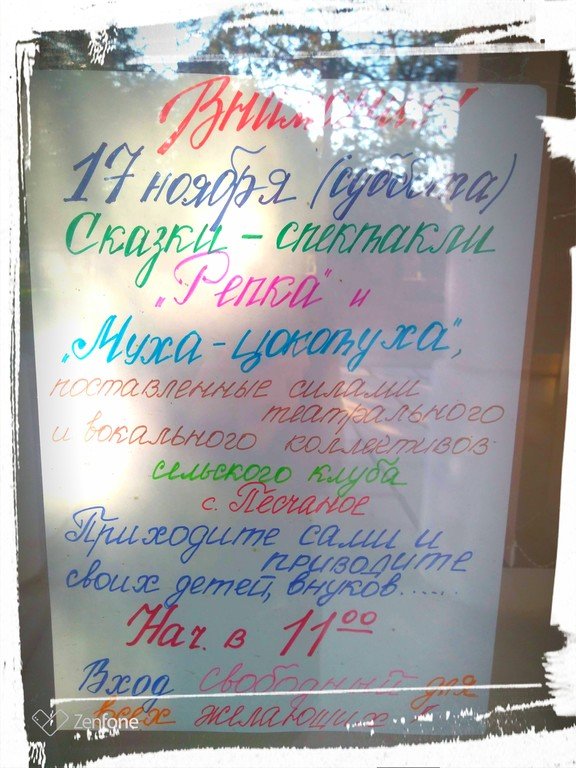 Внимание!
17 ноября (суббота)
Сказки - спектакли
„Репка" и
„Муха-цокотуха",
поставленные силами
театрального
и вокального коллективов
сельского клуба
с. Песчаное
Приходите сами и
приводите
своих детей, внуков......
Нач. в 11⁰⁰
Вход свободный для
всех желающих!
Zenfone